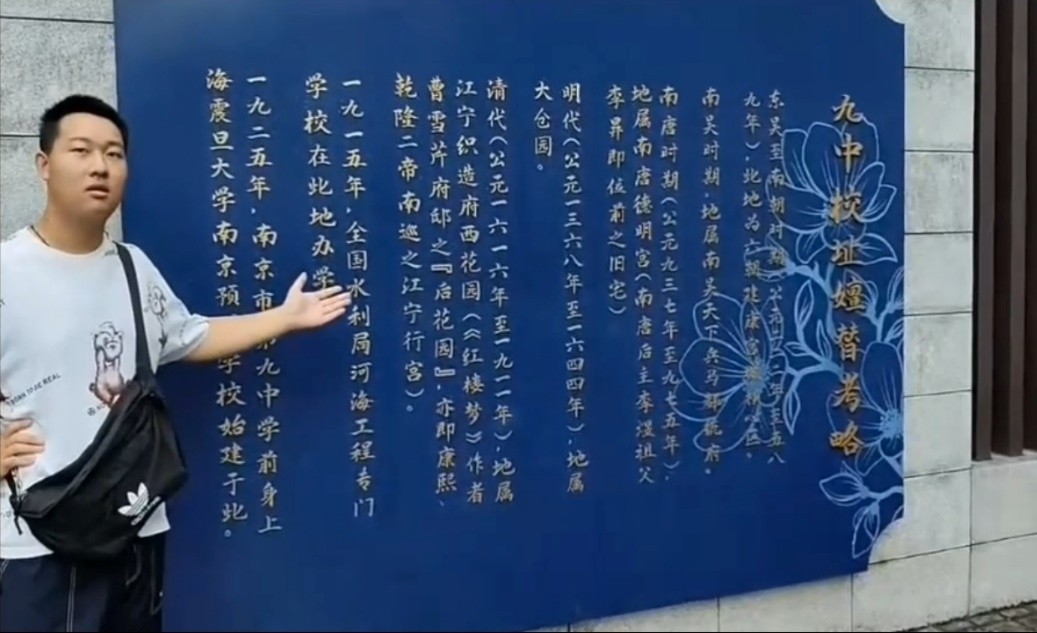 九中校址嬗替考略
东吴至南朝时期(公元二二二年至五八
九年),此地为六朝建康宫
南吴时期,地属南吴天下兵马都统府。
南唐时期(公元九三七年至九七五年),
地属南唐德明宫(南唐后主李煜祖父
李昪即位前之旧宅)
明代(公元一三六八年至一六四四年),地属
大仓园。
清代(公元一六一六年至一九一一年),地属
江宁织造府西花园(《红楼梦》作者
曹雪芹府邸之『后花园』,亦即康熙、
乾隆二帝南巡之江宁行宫)。
一九一五年,全国水利局河海工程专门
学校在此地办学
一九二五年,南京市第九中学前身上
海震旦大学南京预 学校始建于此。
TO BE REAL
adidas